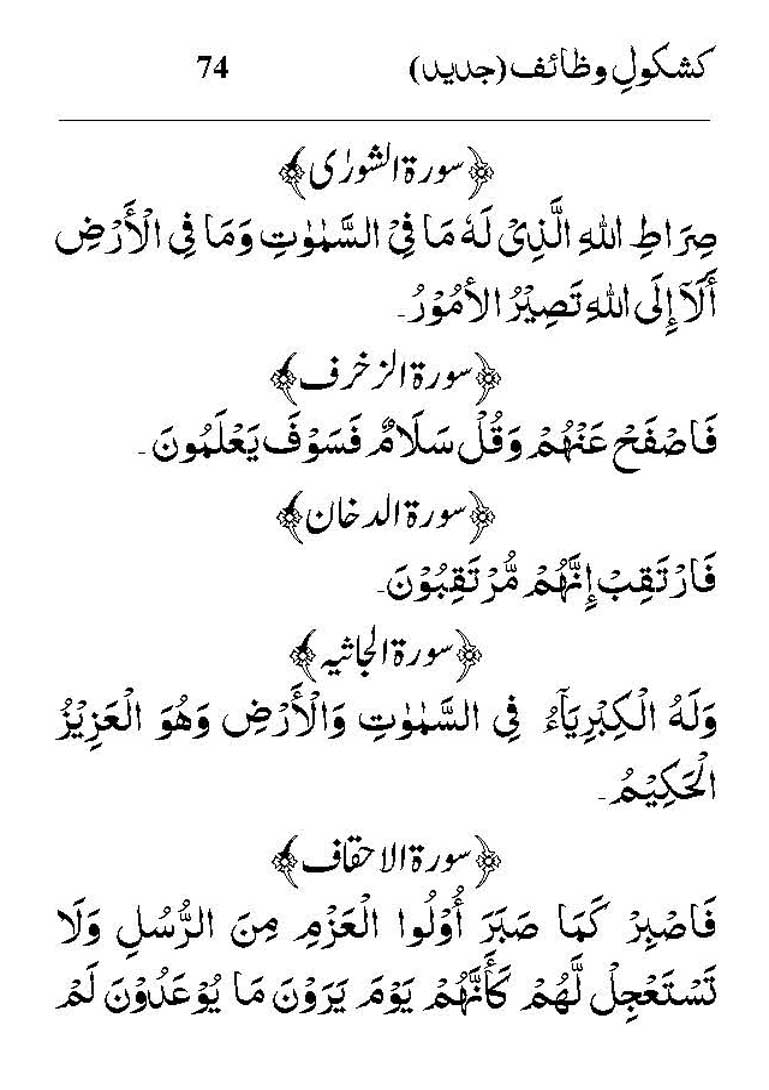 کشکولِ وظائف (جدید) 74
﴿سورۃ الشورٰی﴾
صِرَاطِ اللهِ الَّذِیْ لَهٗ مَا فِیْ السَّمٰوٰتِ وَمَا فِی الْأَرْضِ
أَلَآ إِلَی اللهِ تَصِیْرُ الأمُوْرُ۔
﴿سورۃ الزخرف﴾
فَاصْفَحْ عَنْهُمْ وَقُلْ سَلَامٌ فَسَوْفَ یَعْلَمُونَ۔
﴿سورۃ الدخان﴾
فَارْتَقِبْ إِنَّهُمْ مُّرْتَقِبُوْنَ۔
﴿سورۃ الجاثیہ﴾
وَلَهُ الْکِبْرِیَآءُ فِی السَّمٰوٰتِ وَالْأَرْضِ وَهُوَ الْعَزِیْزُ
الْحَکِیْمُ۔
﴿سورۃ الاحقاف﴾
فَاصْبِرْ کَمَا صَبَرَ أُوْلُوا الْعَزْمِ مِنَ الرُّسُلِ وَلَا
تَسْتَعْجِلْ لَّهُمْ کَأَنَّهُمْ یَوْمَ یَرَوْنَ مَا یُوْعَدُوْنَ لَمْ